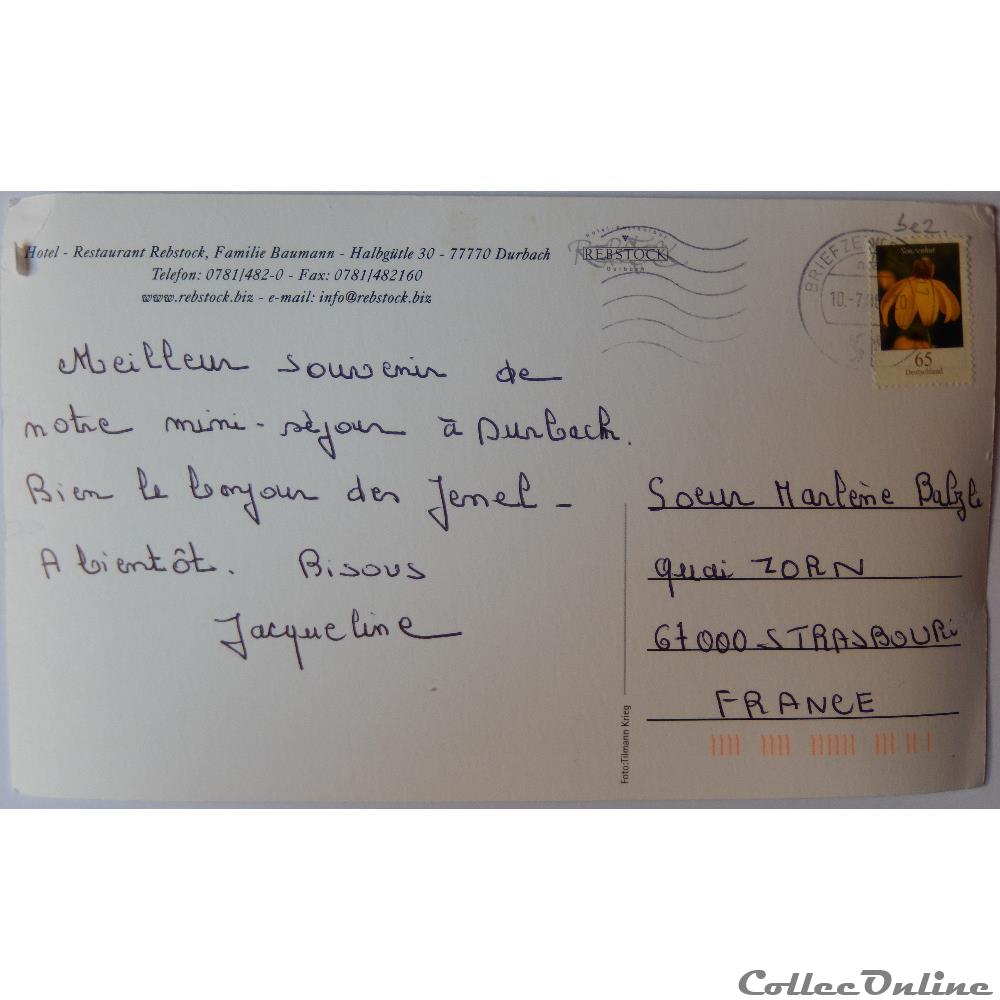 Hotel - Restaurant Rebstock, Familie Baumann - Halbgütle 30 - 77770 Durbach
Telefon: 0781/482-0 - Fax: 0781/482160
www.rebstock.biz - e-mail: info@rebstock.biz
Hotel-Restaurant
REBSTOCK
Durbach
BRIEFZE
10.-7.
Sonnenhut
65
Deutschland
Meilleur souvenir de
notre mini-séjour à Durbach.
Bien le bonjour des Jenel -
A bientôt. Bisous
Jacqueline
Soeur Marlène
Quai ZORN
67000 STRASBOURG
FRANCE
Foto:Tilmann Krieg
CollecOnline